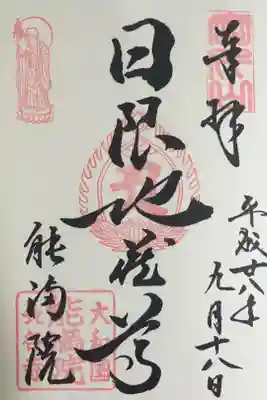 奉拝
平成廿八年
九月十八日
日限地蔵尊
能満院
大和国
能満院